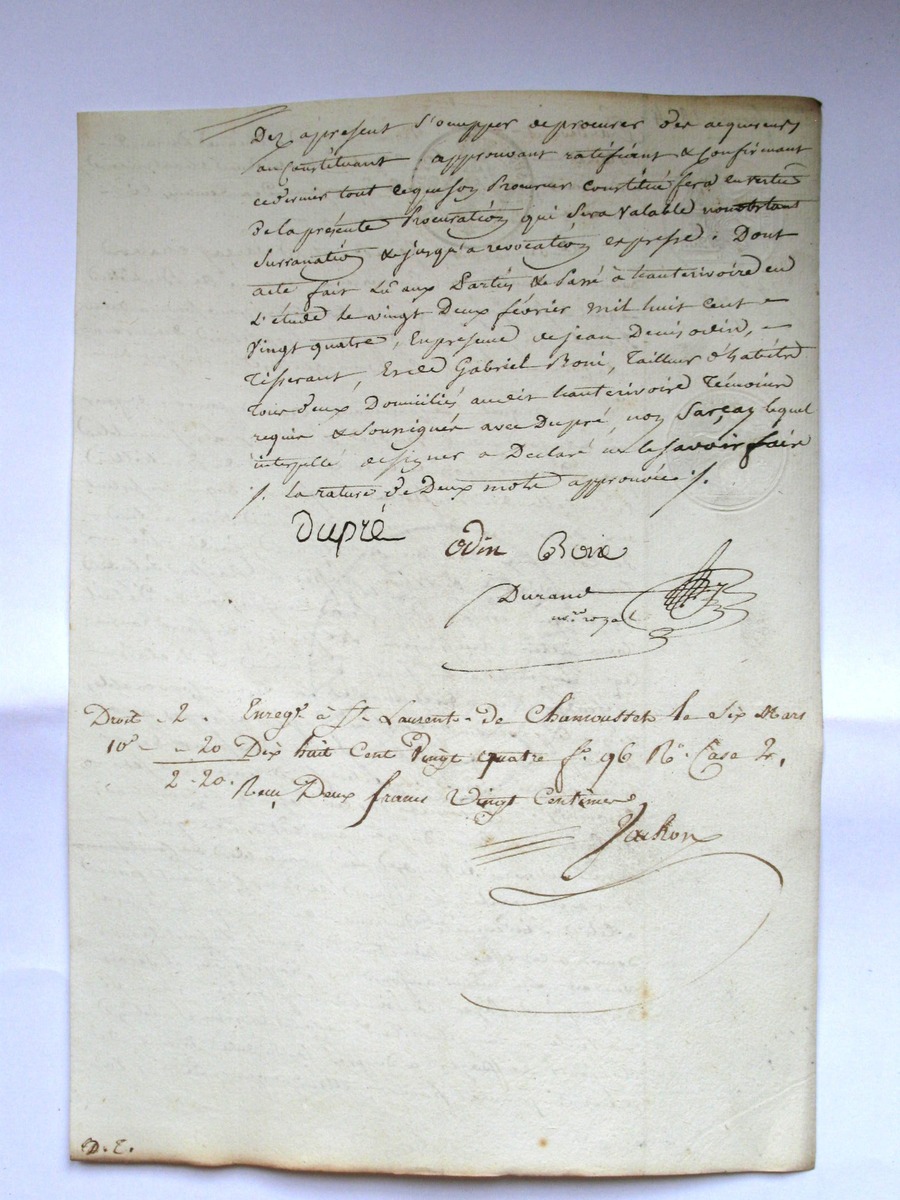 Dez apresent s'ocupper de procurer des acquereurs
au Constituant, approuvant ratifiant & Confirmant
ce dernier tout ce que son Procureur Constitué fera en vertue
de la présente Procuration qui sera valable nonobstant
surranation & jusqu'a revocation expresse. Dont
acte fait Lu aux Parties & Passé à hauterivoire en
L'étude le vingt Deux février mil huit cent
vingt quatre, En presence de jean Denis odin,
Tisserant, Et de Gabriel Boni, Tailleur d'habits
tous deux Domiciliés audit hauterivoire Témoins
requis & soussignés avec Dupré, non Sarçay lequel
interpellé de signer a Declaré ne le savoir faire
/. la rature de Deux mots approuvée /.
Dupré odin Boix
Durand
nre royal
Droit 2. Enregé à St Laurent-de Chamousset le six Mars
10e 20 Dix huit Cent Vingt quatre fo 96 Ro Case 2,
2-20. Recu Deux francs Vingt Centimes
D. T.